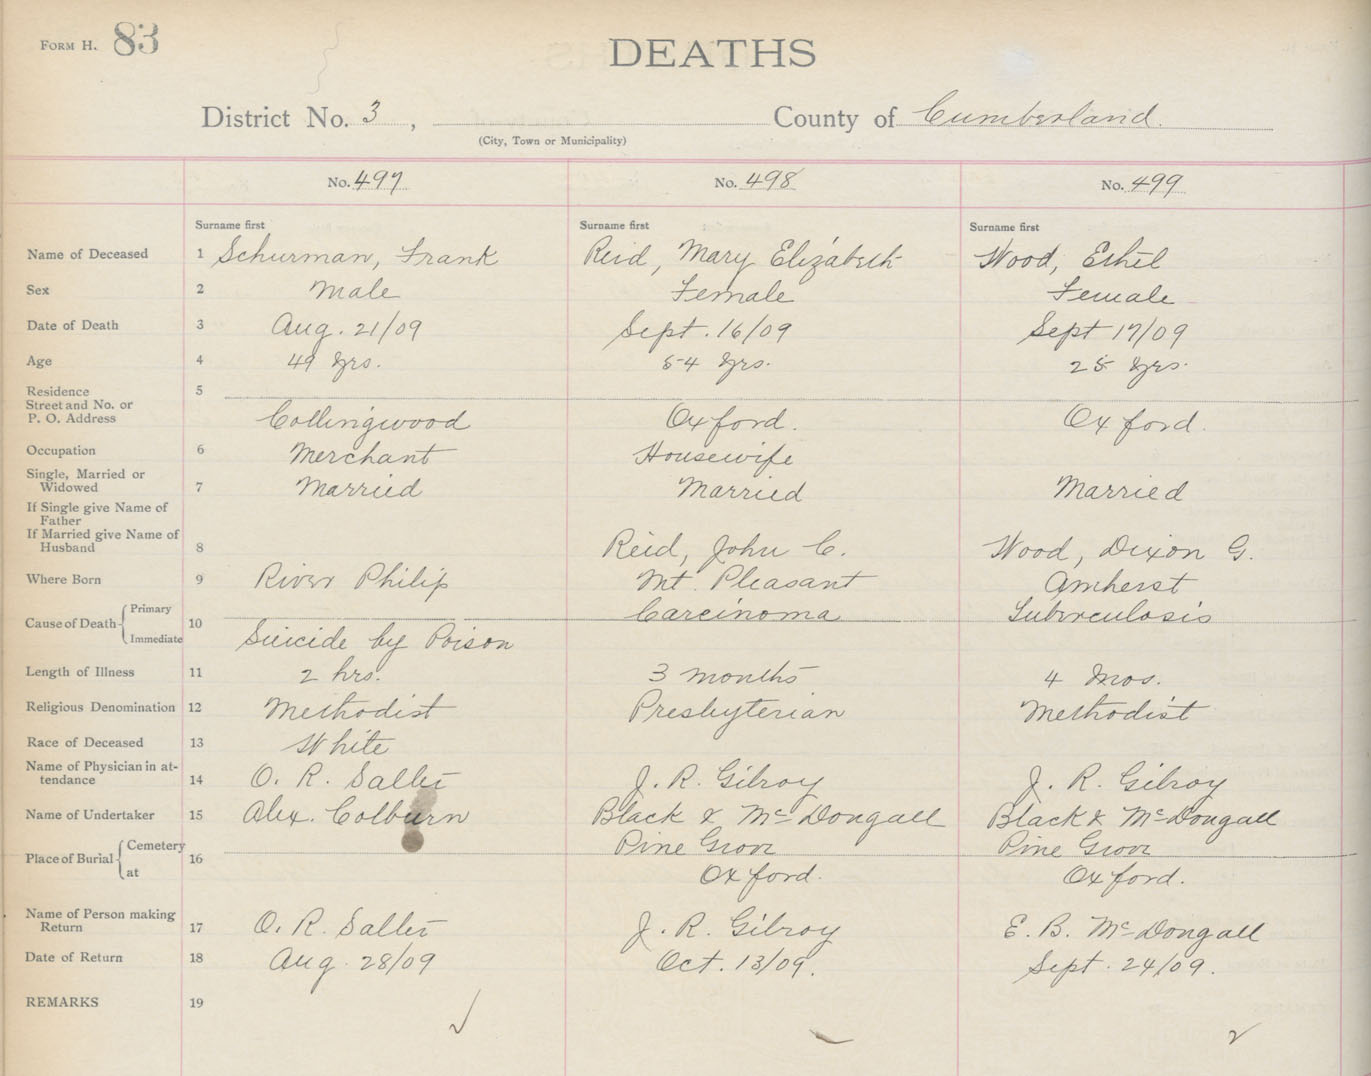 FORM H. 83
DEATHS
District No. 3, County of Cumberland.
(City, Town or Municipality)
No. 497 No. 498 No. 499
Surname first Surname first Surname first
Name of Deceased 1 Schurman, Frank Reid, Mary Elizabeth Wood, Ethel
Sex 2 Male Female Female
Date of Death 3 Aug. 21/09 Sept. 16/09 Sept 17/09
Age 4 49 yrs. 54 yrs. 25 yrs.
Residence 5
Street and No. or
P. O. Address Collingwood Oxford. Oxford.
Occupation 6 Merchant Housewife
Single, Married or
Widowed 7 Married Married Married
If Single give Name of
Father
If Married give Name of
Husband 8 Reid, John C. Wood, Dixon G.
Where Born 9 River Philip Mt. Pleasant Amherst
Cause of Death Primary Carcinoma Tuberculosis
10
Immediate Suicide by Poison
Length of Illness 11 2 hrs. 3 months 4 mos.
Religious Denomination 12 Methodist Presbyterian Methodist
Race of Deceased 13 White
Name of Physician in at-
tendance 14 O. R. Salter J. R. Gilroy J. R. Gilroy
Name of Undertaker 15 Alex. Colburn Black & McDougall Black & McDougall
Place of Burial Cemetery 16 Pine Grove Pine Grove
at Oxford. Oxford.
Name of Person making
Return 17 O. R. Salter J. R. Gilroy E. B. McDougall
Date of Return 18 Aug. 28/09 Oct. 13/09. Sept. 24/09.
REMARKS 19